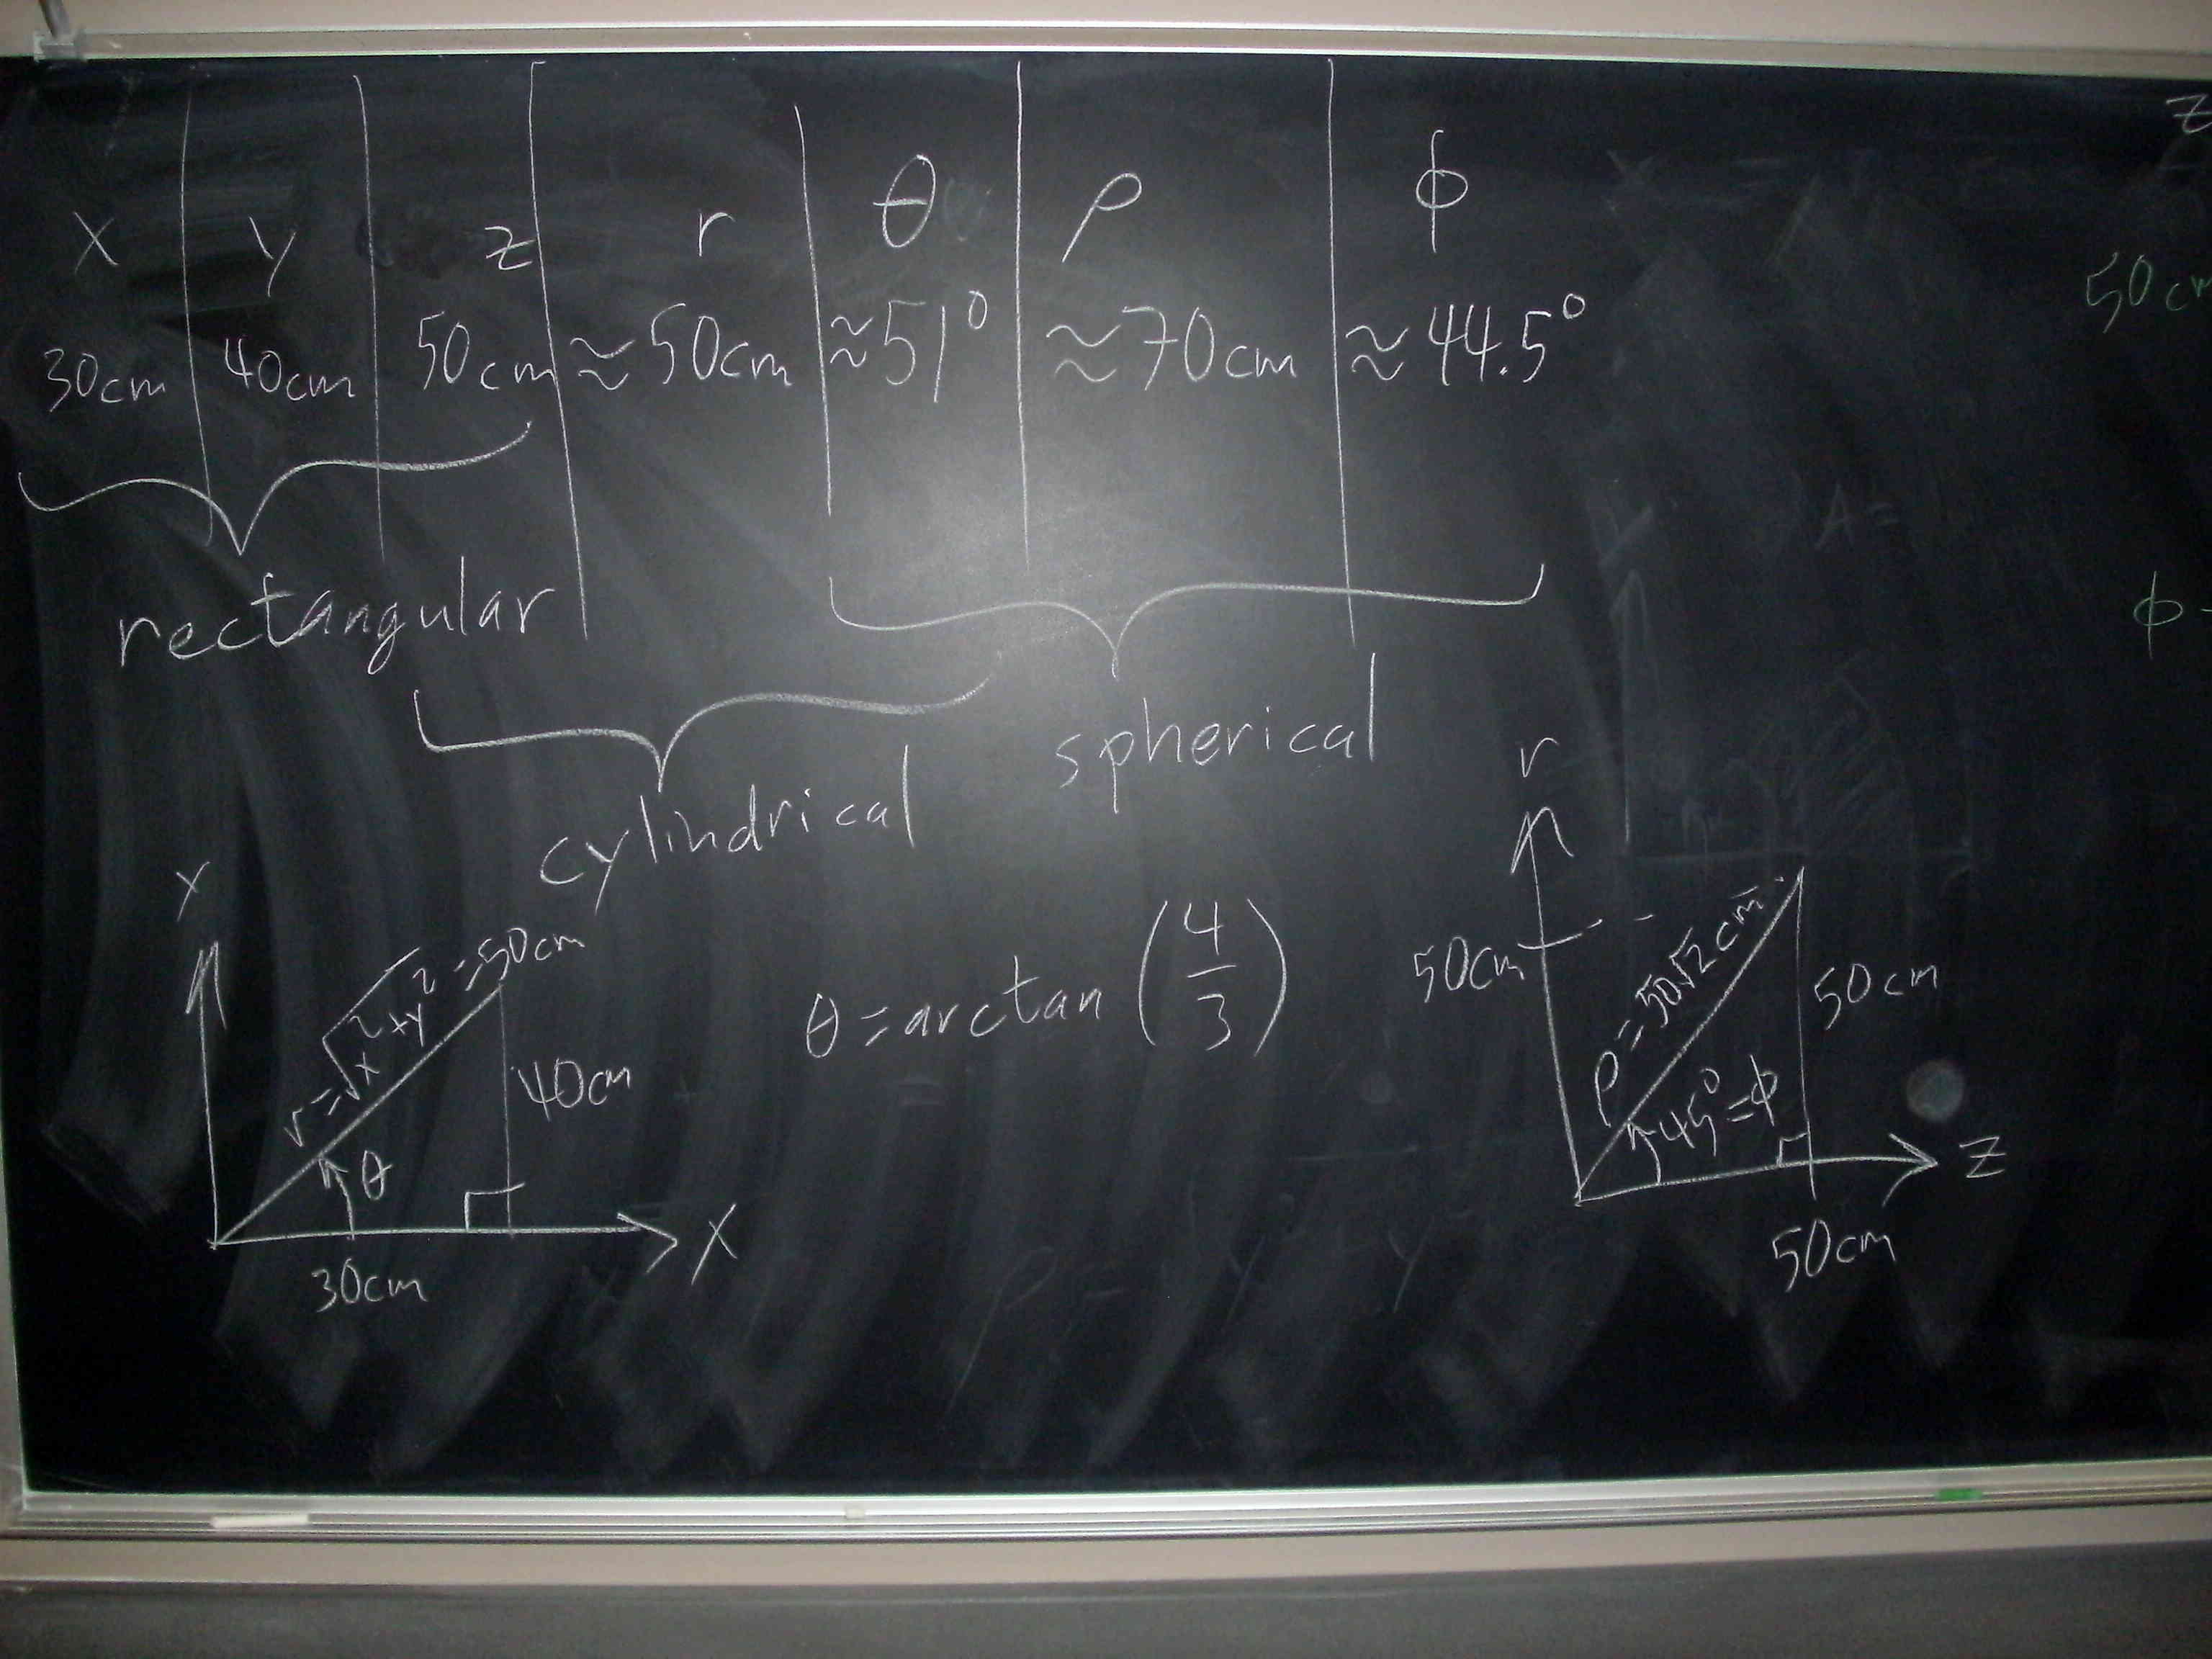 x y z r θ ρ ϕ
30cm 40cm 50cm ≈50cm ≈51° ≈70cm ≈44.5°
rectangular
cylindrical
spherical
y
r=√x²+y²=50cm
40cm
θ
30cm
x
θ=arctan(4/3)
r
50cm
ρ=50√2cm
50cm
45°=ϕ
z
50cm
z
50cm
ϕ